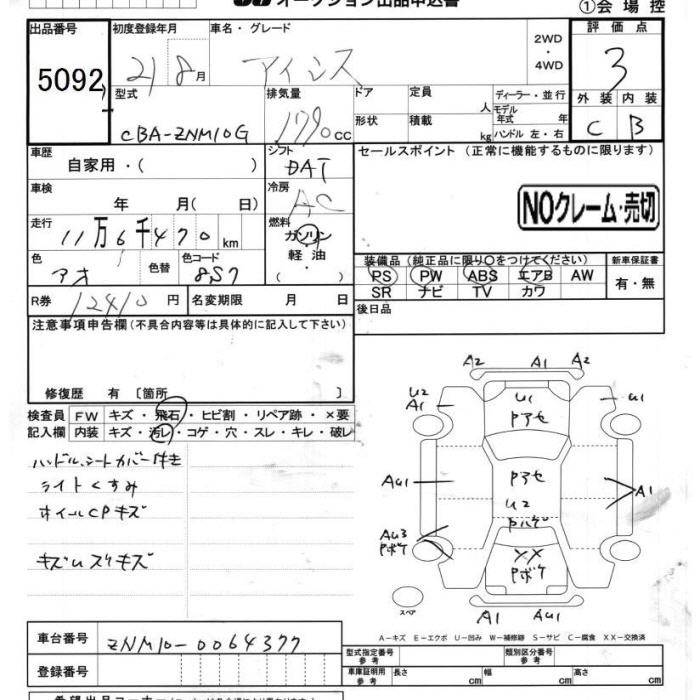 オークション出品申込書
①会場控
出品番号
初度登録年月
車名・グレード
評価点
5092
21 8月
アイシス
2WD
・
4WD
3
型式
排気量
ドア
定員
ディーラー・並行
外装 内装
人
モデル年式 年
C B
CBA-ZNM10G
1790cc
形状
積載
kg
ハンドル 左・右
車歴
自家用・( )
シフト
DAT
セールスポイント (正常に機能するものに限ります)
車検
年 月( 日)
冷房
AC
NOクレーム・売切
走行
11万6千470km
燃料
ガソリン
軽油
・
( )
装備品(純正品に限り○をつけてください)
新車保証書
色
アオ
色替
色コード
8S7
PS PW ABS エアB AW
SR ナビ TV カワ
有・無
R券
12410円
名変期限 月 日
後日品
注意事項申告欄(不具合内容等は具体的に記入して下さい)
修復歴 有 〔箇所 〕
検査員 FW キズ・飛石・ヒビ割・リペア跡・×要
記入欄 内装 キズ・汚レ・コゲ・穴・スレ・キレ・破レ
ハンドル、シートカバー付き
ライトくすみ
ホイールCPキズ
キズUスリキズ
A2 A1 A2
U2
A1
U1
U1
Pアセ
AU1
Pアセ
A1
U2
Pハゲ
AU3
Pボケ
XX
Pボケ
スペア
A1 AU1
A-キズ E-エクボ U-凹み W-補修跡 S-サビ C-腐食 XX-交換済
車台番号
ZNM10-0064377
型式指定番号
参考
類別区分番号
参考
登録番号
車庫証明用
参考
長さ cm
幅 cm
高さ cm